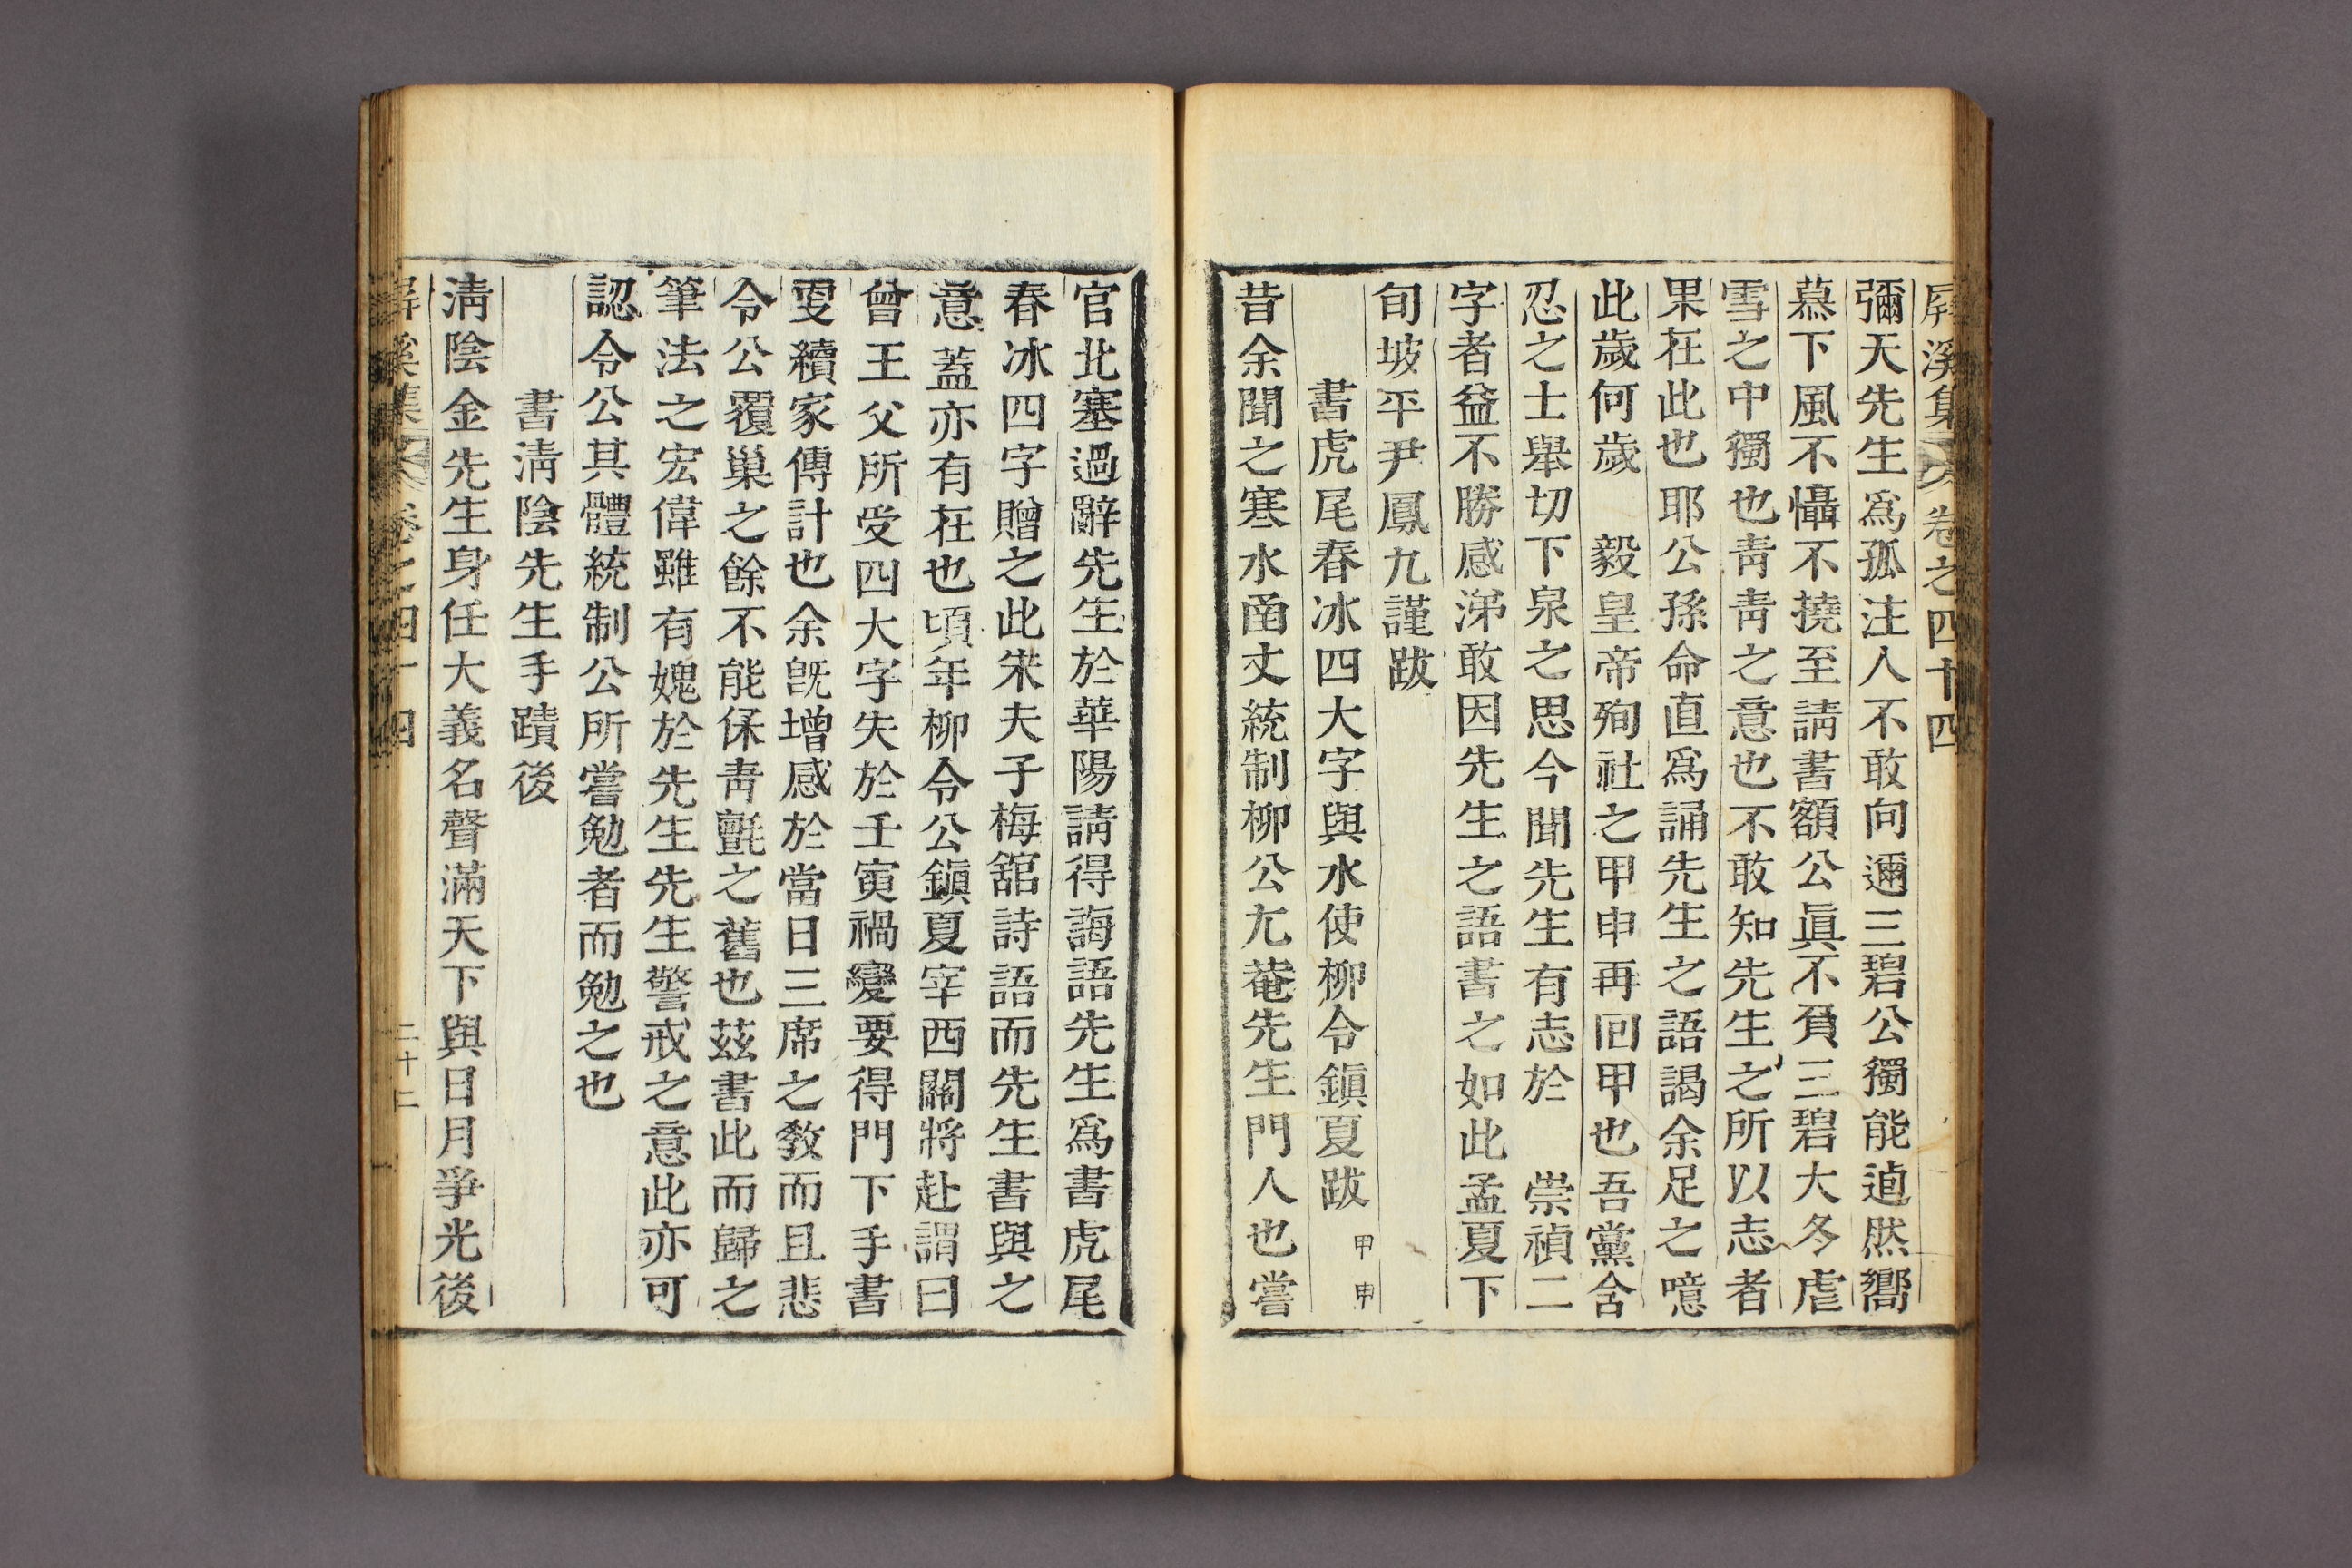 屛溪集 卷之四十四
彌天先生爲孤注人不敢向邇三碧公獨能逌然嚮
慕下風不懾不撓至請書額公眞不負三碧大冬虐
雪之中獨也靑靑之意也不敢知先生之所以志者
果在此也耶公孫命直爲誦先生之語謁余足之噫
此歲何歲 毅皇帝殉社之甲申再回甲也吾黨含
忍之士舉切下泉之思今聞先生有志於 崇禎二
字者益不勝感涕敢因先生之語書之如此孟夏下
旬坡平尹鳳九謹跋
書虎尾春冰四大字與水使柳令鎭夏跋 甲申
昔余聞之寒水函丈統制柳公尢菴先生門人也嘗
官北塞過辭先生於華陽請得誨語先生爲書虎尾
春冰四字贈之此朱夫子梅舘詩語而先生書與之
意蓋亦有在也頃年柳令公鎭夏宰西關將赴謂曰
曾王父所受四大字失於壬寅禍變要得門下手書
更續家傳計也余旣增感於當日三席之敎而且悲
令公覆巢之餘不能保靑氈之舊也玆書此而歸之
筆法之宏偉雖有媿於先生先生警戒之意此亦可
認令公其體統制公所嘗勉者而勉之也
書淸陰先生手蹟後
淸陰金先生身任大義名聲滿天下與日月爭光後
屛溪集 卷之四十四 二十二